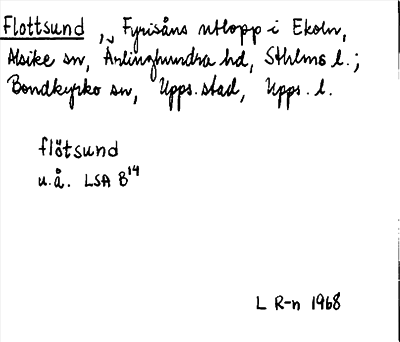 Flottsund, Fyrisåns utlopp i Ekoln,
Alsike sn, Ärlinghundra hd, Sthlms l.;
Bondkyrko sn, Upps. stad, Upps. l.
flötsund
u.å. LSA B¹⁴
L R-n 1968